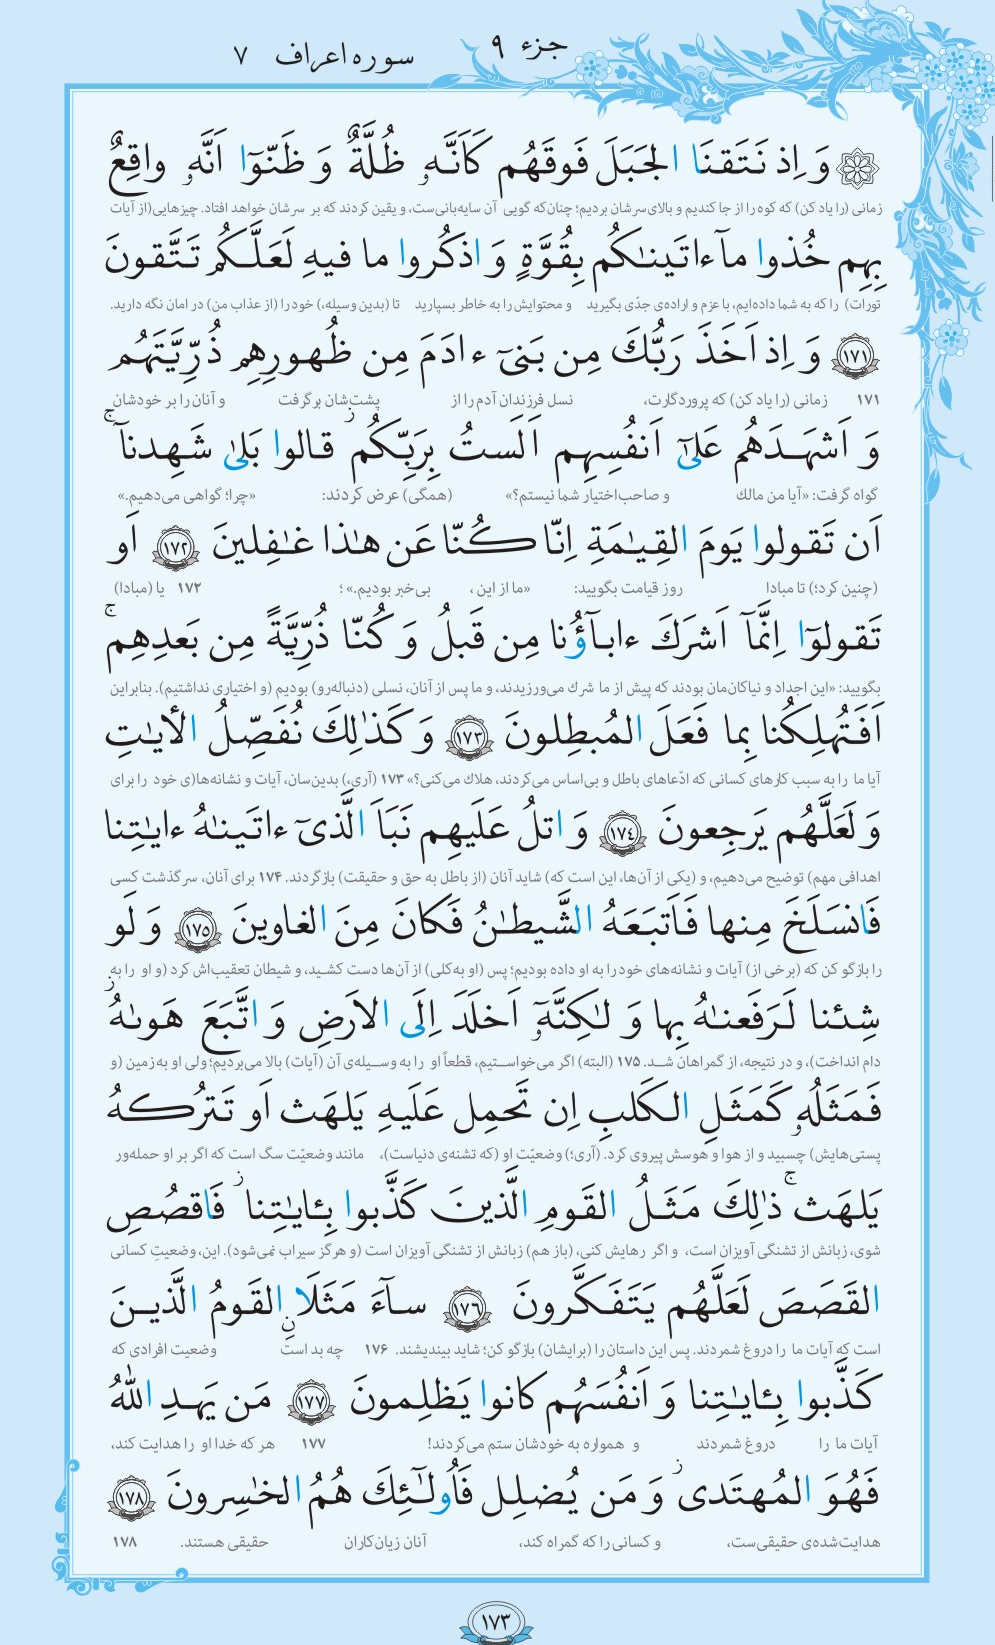 جزء ۹
سوره اعراف ۷
وَ اِذ نَتَقنَا الجَبَلَ فَوقَهُم كَاَنَّهۥ ظُلَّةٌ وَ ظَنّوٓا اَنَّهۥ واقِعٌ
زمانی (را یاد کن) که کوه را از جا کندیم و بالای سرشان بردیم؛ چنان‌که گویی آن سایه‌بانی‌ست، و یقین کردند که بر سرشان خواهد افتاد. چیزهایی(از آیات
بِهِم خُذوا مآ ءاتَينٰكُم بِقُوَّةٍ وَ اذكُروا ما فيهِ لَعَلَّكُم تَتَّقونَ
تورات) را که به شما داده‌ایم، با عزم و اراده‌ی جدّی بگیرید و محتوایش را به خاطر بسپارید تا (بدین وسیله،) خود را (از عذاب من) در امان نگه دارید.
﴿۱۷۱﴾ وَ اِذ اَخَذَ رَبُّكَ مِن بَنىٓ ءادَمَ مِن ظُهورِهِم ذُرِّيَّتَهُم
۱۷۱ زمانی (را یاد کن) که پروردگارت، نسل فرزندان آدم را از پشت‌شان برگرفت و آنان را بر خودشان
وَ اَشهَدَهُم عَلىٰٓ اَنفُسِهِم اَلَستُ بِرَبِّكُم ۖ قالوا بَلىٰ شَهِدنآ ۚ
گواه گرفت: «آیا من مالك و صاحب‌اختیار شما نیستم؟» (همگی) عرض کردند: «چرا؛ گواهی می‌دهیم.»
اَن تَقولوا يَومَ القِيٰمَةِ اِنّا كُنّا عَن هٰذا غٰفِلينَ ﴿۱۷۲﴾ اَو
(چنین کرد؛) تا مبادا روز قیامت بگویید: «ما از این ، بی‌خبر بودیم.»؛ ۱۷۲ یا (مبادا)
تَقولوٓا اِنَّمآ اَشرَكَ ءابآؤُنا مِن قَبلُ وَ كُنّا ذُرِّيَّةً مِن بَعدِهِم ۚ
بگویید: «این اجداد و نیاکان‌مان بودند که پیش از ما شرك می‌ورزیدند، و ما پس از آنان، نسلی (دنباله‌رو) بودیم (و اختیاری نداشتیم). بنابراین
اَفَتُهلِكُنا بِما فَعَلَ المُبطِلونَ ﴿۱۷۳﴾ وَ كَذٰلِكَ نُفَصِّلُ الأيٰتِ
آیا ما را به سبب کارهای کسانی که ادّعاهای باطل و بی‌اساس می‌کردند، هلاك می‌کنی؟» ۱۷۳ (آری،) بدین‌سان، آیات و نشانه‌ها(ی خود را برای
وَ لَعَلَّهُم يَرجِعونَ ﴿۱۷٤﴾ وَ اتلُ عَلَيهِم نَبَاَ الَّذىٓ ءاتَينٰهُ ءايٰتِنا
اهدافی مهم) توضیح می‌دهیم، و (یکی از آن‌ها، این است که) شاید آنان (از باطل به حق و حقیقت) بازگردند. ۱۷۴ برای آنان، سرگذشت کسی
فَانسَلَخَ مِنها فَاَتبَعَهُ الشَّيطٰنُ فَكانَ مِنَ الغاوينَ ﴿۱۷۵﴾ وَ لَو
را بازگو کن که (برخی از) آیات و نشانه‌های خود را به او داده بودیم؛ پس (او به‌کلی) از آن‌ها دست کشید، و شیطان تعقیب‌اش کرد (و او را به
شِئنا لَرَفَعنٰهُ بِها وَ لٰكِنَّهۥٓ اَخلَدَ اِلَى الاَرضِ وَ اتَّبَعَ هَوىٰهُ ۚ
دام انداخت)، و در نتیجه، از گمراهان شد. ۱۷۵ (البته) اگر می‌خواستیم، قطعاً او را به وسیله‌ی آن (آیات) بالا می‌بردیم؛ ولی او به زمین (و
فَمَثَلُهۥ كَمَثَلِ الكَلبِ اِن تَحمِل عَلَيهِ يَلهَث اَو تَترُكهُ
پستی‌هایش) چسبید و از هوا و هوسش پیروی کرد. (آری؛) وضعیّت او (که تشنه‌ی دنیاست)، مانند وضعیّت سگ است که اگر بر او حمله‌ور
يَلهَث ۚ ذٰلِكَ مَثَلُ القَومِ الَّذينَ كَذَّبوا بِـٔايٰتِنا ۚ فَاقصُصِ
شوی، زبانش از تشنگی آویزان است، و اگر رهایش کنی، (باز هم) زبانش از تشنگی آویزان است (و هرگز سیراب نمی‌شود). این، وضعیتِ کسانی
القَصَصَ لَعَلَّهُم يَتَفَكَّرونَ ﴿۱۷۶﴾ سآءَ مَثَلًا القَومُ الَّذينَ
است که آیات ما را دروغ شمردند. پس این داستان را (برایشان) بازگو کن؛ شاید بیندیشند. ۱۷۶ چه بد است وضعیت افرادی که
كَذَّبوا بِـٔايٰتِنا وَ اَنفُسَهُم كانوا يَظلِمونَ ﴿۱۷۷﴾ مَن يَهدِ اللّٰهُ
آیات ما را دروغ شمردند و همواره به خودشان ستم می‌کردند! ۱۷۷ هر که خدا او را هدایت کند،
فَهُوَ المُهتَدى ۖ وَ مَن يُضلِل فَاُولٰٓئِكَ هُمُ الخٰسِرونَ ﴿۱۷۸﴾
هدایت‌شده‌ی حقیقی‌ست، و کسانی را که گمراه کند، آنان زیان‌کاران حقیقی هستند. ۱۷۸
۱۷۳